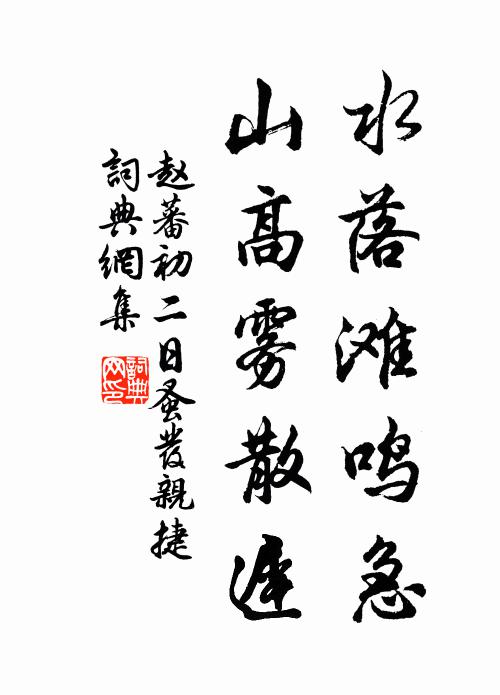 水落滩鸣急
山高雾散遲
赵蕃初二日蚤發親捷
詞典網集
詞典網印